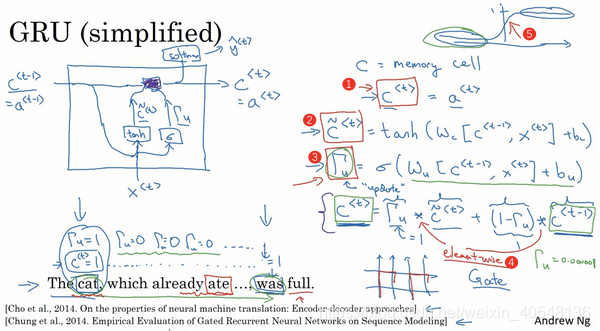 GRU (simplified)
softmax → ŷ<t>
c<t-1>
= a<t-1>
c<t>
= a<t>
c̃<t>
Γu
tanh
σ
x<t>
5
C = memory cell
1
c<t> = a<t>
2
c̃<t> = tanh(Wc[c<t-1>, x<t>] + bc)
3
Γu = σ(Wu[c<t-1>, x<t>] + bu)
"update"
c<t> = Γu * c̃<t> + (1-Γu) * c<t-1>
element-wise 4
Gate
Γu = 0.000001
Γu = 1
Γu = 0 Γu = 0 Γu = 0 ......
c<t> = 1
...... = 1
The cat, which already ate ..., was full.
[Cho et al., 2014. On the properties of neural machine translation: Encoder-decoder approaches]
[Chung et al., 2014. Empirical Evaluation of Gated Recurrent Neural Networks on Sequence Modeling]
Andrew Ng